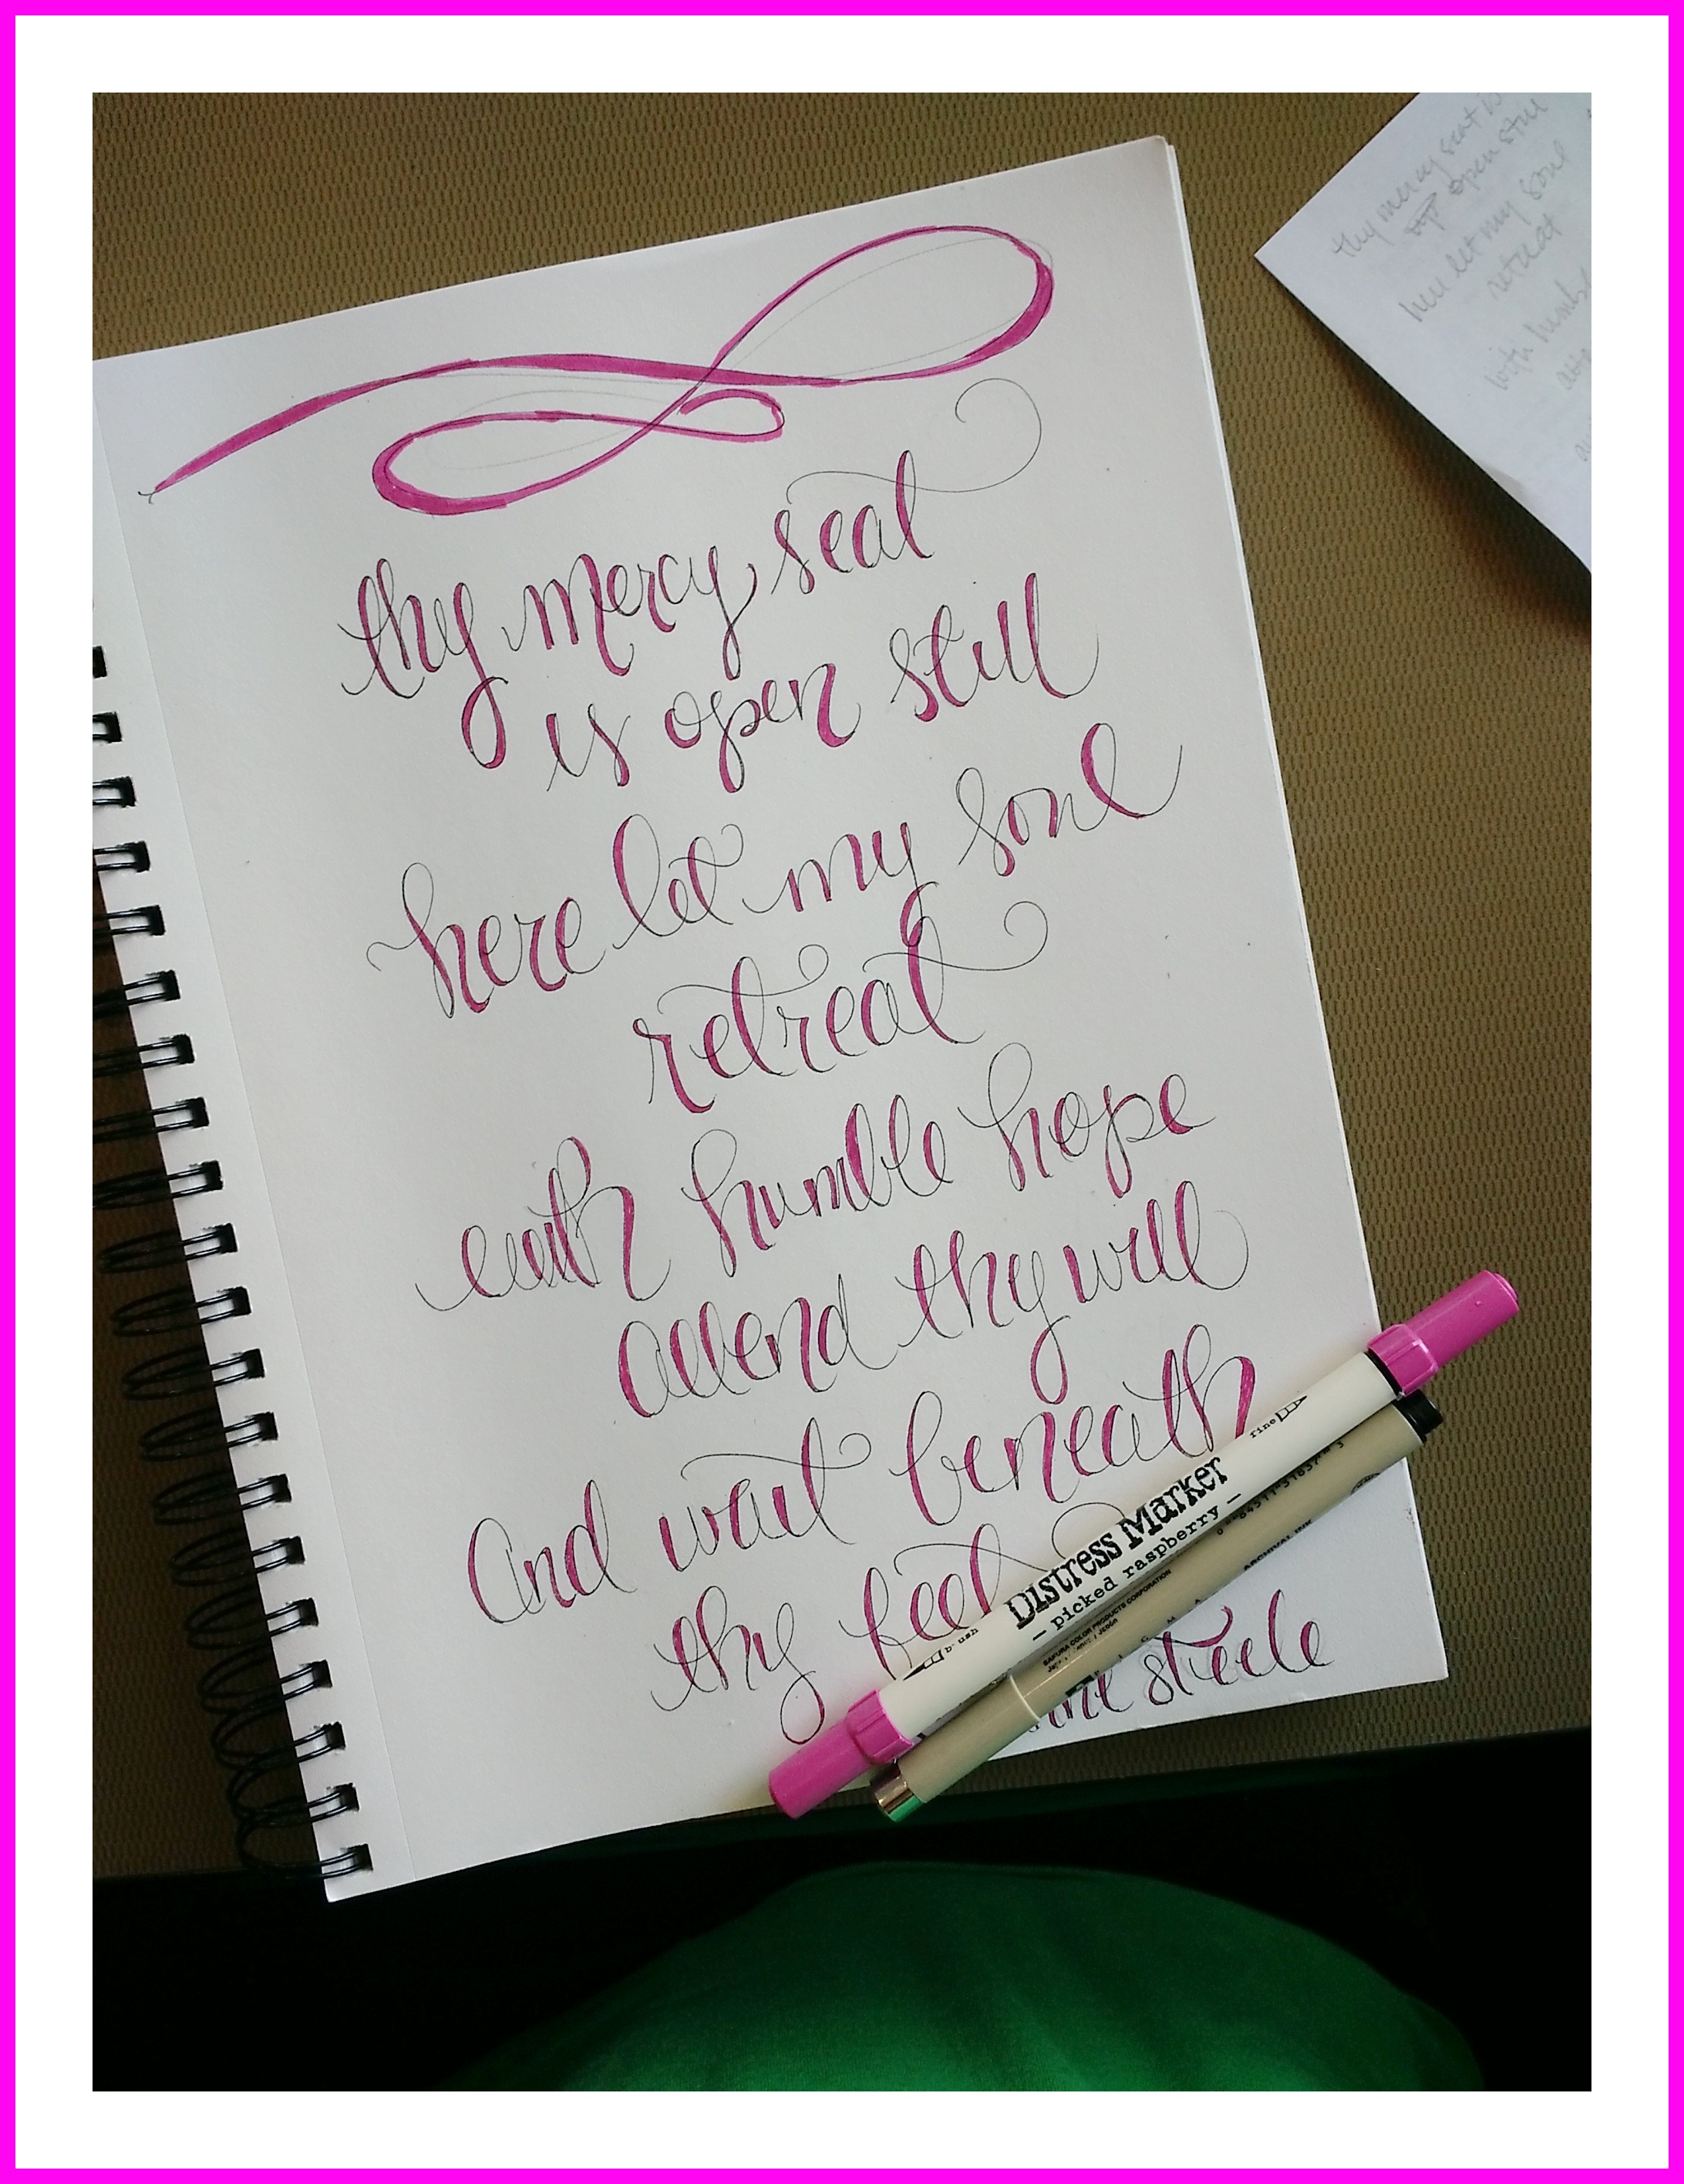 thy mercy seat
is open still
here let my soul
retreat
with humble hope
attend thy will
And wait beneath
thy feet
steele
thy mercy seat is
open still
here let my soul
retreat
with
brush
Distress Marker
– picked raspberry –
fine
SAKURA COLOR PRODUCTS CORPORATION
ARCHIVAL INK